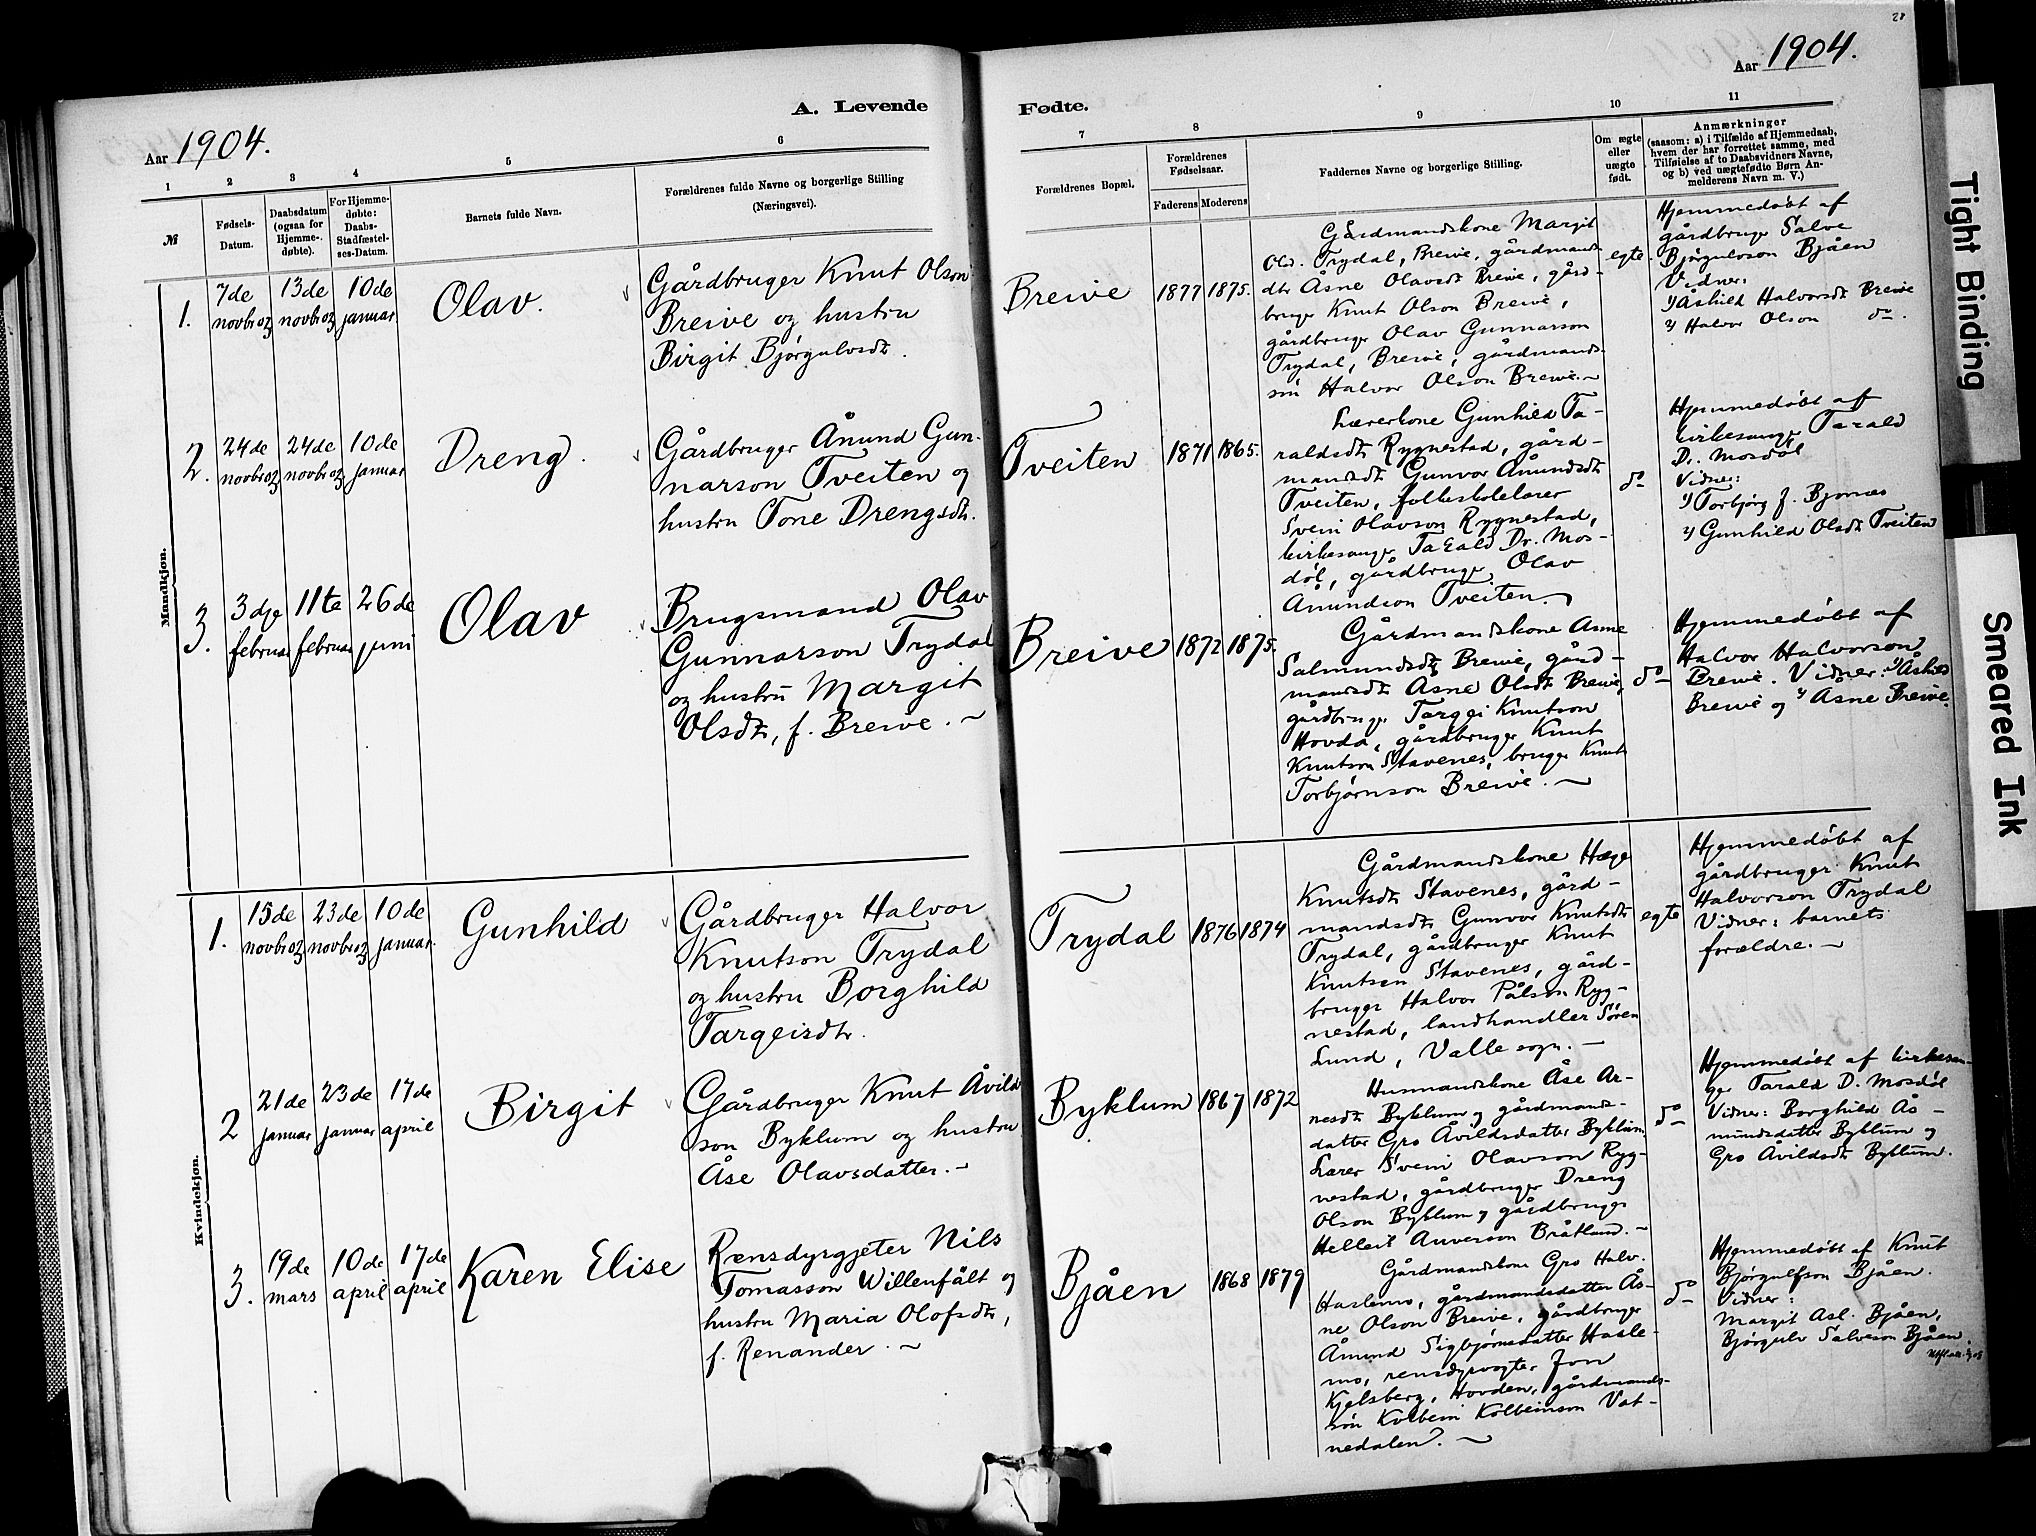 28
Aar 1904.
A. Levende
Aar 1904.
1
2
3
4
5
6
№
Fødsels-
Datum.
Daabsdatum
(ogsaa for
Hjemme-
døbte).
For Hjemme-
døbte:
Daabs-
Stadfæstel-
ses-Datum.
Barnets fulde Navn.
Forældrenes fulde Navne og borgerlige Stilling
(Næringsvei).
Mandkjøn.
1.
7de
novbr 03
13de
novbr 03
10de
januar.
Olav.
Gårdbruger Knut Olson
Breive og hustru
Birgit Bjørgulvsdt.
2.
24de
novbr 03
24de
novbr 03
10de
januar
Dreng.
Gårdbruger Ånund Gun-
narson Tveiten og
hustru Tone Drengsdt.
3.
3dje
februar
11te
februar
26de
juni
Olav
Brugsmand Olav
Gunnarson Trydal
og hustru Margit
Olsdt, f. Breive. ~
Kvindekjøn.
1.
15de
novbr 03
23de
novbr 03
10de
januar.
Gunhild
Gårdbruger Halvor
Knutson Trydal
og hustru Borghild
Targeisdt.
2
21de
januar
23de
januar
17de
april
Birgit
Gårdbruger Knut Åvild
son Byklum og hustru
Åse Olavsdatter. ~
3.
19de
mars
10de
april
17de
april
Karen Elise
Rensdyrgjeter Nils
Tomasson Willenfält og
hustru Maria Olofsdt,
f. Renander. ~
Fødte.
7
8
9
10
11
Forældrenes Bopæl.
Forældrenes
Fødselsaar.
Faderens
Moderens
Faddernes Navne og borgerlige Stilling.
Om ægte
eller
uægte
født.
Anmærkninger
(saasom: a) i Tilfælde af Hjemmedaab,
hvem der har forrettet samme, med
Tilføielse af to Daabsvidners Navne,
og b) ved uægtefødte Børn An-
melderens Navn m. V.)
Breive
1877
1875.
Gårdmandskone Margit
Olsd. Trydal, Breive, gårdmands
dtr Åsne Olavsdt Breive, gård-
bruger Knut Olson Breive,
gårdbruger Olav Gunnarson
Trydal, Breive, gårdmands
søn Halvor Olson Breive. ~
egte.
Hjemmedøbt af
gårdbruger Salve
Bjørgulvson Bjåen
Vidner:
1) Åshild Halvorsdt Breive
2) Halvor Olson do.
Tveiten
1871
1865.
Lærerkone Gunhild Ta-
raldsdt Rygnestad, gård-
mandsdt Gunvor Ånundsdt
Tveiten, folkeskolelærer
Svein Olavson Rygnestad,
kirkesanger Tarald Dr. Mos-
døl, gårdbruger Olav
Ånundson Tveiten. ~
do
Hjemmedøbt af
kirkesanger Tarald
Dr. Mosdøl
Vidner:
1) Torbjørg f. Bjornes
2) Gunhild Olsdt Tveiten
Breive
1872
1875.
Gårdmandskone Åsne
Salmundsdt Breive, gård-
mandsdt Åsne Olsdt Breive,
gårdbruger Targei Knutson
Hovda, gårdbruger Knut
Knutson Stavenes, bruger Knut
Torbjørnson Breive. ~
do
Hjemmedøbt af
Halvor Halvorson
Breive. Vidner: 1) Åshild
Breive og 2) Åsne Breive.
Trydal
1876
1874
Gårdmandskone Hæge
Knutsdt Stavenes, gård-
mandsdt Gunvor Knutsdt
Trydal, gårdbruger Knut
Knutsen Stavenes, gård-
bruger Halvor Pålson Ryg-
nestad, landhandler Søren
Lund, Valle sogn. ~
egte
Hjemmedøbt af
gårdbruger Knut
Halvorson Trydal
Vidner: barnets
forældre. ~
Byklum
1867
1872
Husmandskone Åse Ar-
nesdt Byklum og gårdmands-
datter Gro Åvildsdatter Byklum
Lærer Svein Olavson Ryg-
nestad, gårdbruger Dreng
Olson Byklum og gårdbruger
Helleik Anverson Bråtland. ~
do
Hjemmedøbt af kirkesan-
ger Tarald D. Mosdøl
Vidner: Borghild Ås-
mundsdatter Byklum og
Gro Åvildsdt Byklum.
Bjåen
1868
1879
Gårdmandskone Gro Halv.
Haslemo, gårdmandsdatter Ås-
ne Olson Breive, gårdbruger
Ånund Sigbjørnsdatter Hasle-
mo, rensdyrvogter Jon
Kjelsberg, Hovden, gårdmands-
søn Kolbein Kolbeinson Vat-
nedalen. ~
do
Hjemmedøbt af Knut
Bjørgulfson Bjåen.
Vidner:
Margit Asl. Bjåen,
Bjørgulv Salveson Bjåen
Tight Binding
Smeared Ink